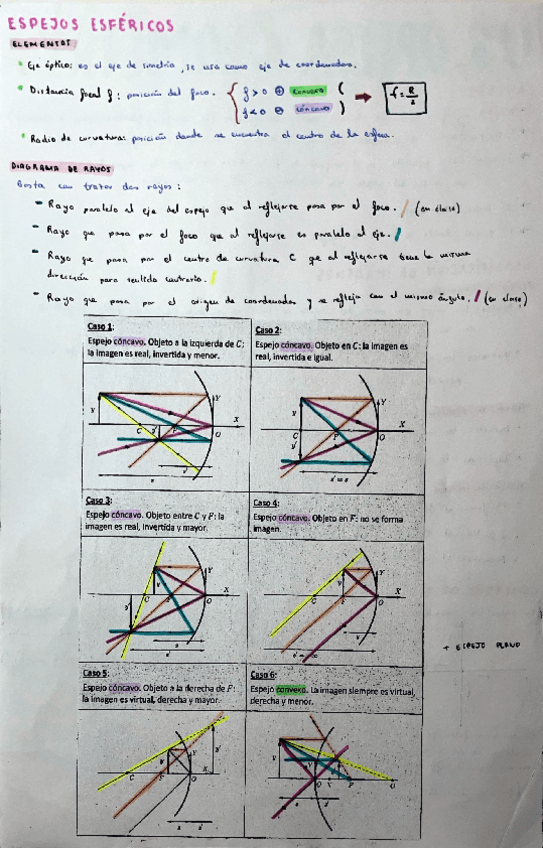 ESPEJOS ESFÉRICOS
ELEMENTOS
• Eje óptico: es el eje de simetría, se usa como eje de coordenadas.
• Distancia focal f: posición del foco.
f > 0 ⊕ CONVEXO (
f < 0 ⊖ CÓNCAVO )
→ f = R/2
• Radio de curvatura: posición donde se encuentra el centro de la esfera.
DIAGRAMA DE RAYOS
Basta con trazar dos rayos:
- Rayo paralelo al eje del espejo que al reflejarse pasa por el foco. / (en clase)
- Rayo que pasa por el foco que al reflejarse es paralelo al eje. /
- Rayo que pasa por el centro de curvatura C que al reflejarse tiene la misma
dirección pero sentido contrario. /
- Rayo que pasa por el origen de coordenadas y se refleja con el mismo ángulo. / (en clase)
Caso 1:
Espejo cóncavo. Objeto a la izquierda de C:
la imagen es real, invertida y menor.
Caso 2:
Espejo cóncavo. Objeto en C: la imagen es
real, invertida e igual.
y Y X C F O y' s' s
y Y X C F O y' s' = s
Caso 3:
Espejo cóncavo. Objeto entre C y F: la
imagen es real, invertida y mayor.
Caso 4:
Espejo cóncavo. Objeto en F: no se forma
imagen.
y Y X C F O y' s s'
y Y X C F O s s' = ∞
+ ESPEJO PLANO
Caso 5:
Espejo cóncavo. Objeto a la derecha de F:
la imagen es virtual, derecha y mayor.
Caso 6:
Espejo convexo. La imagen siempre es virtual,
derecha y menor.
C F y Y O X y' s s'
y Y O X F C s s'